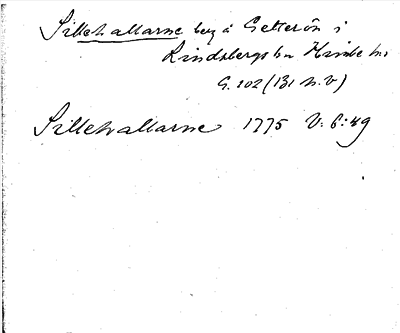 Sillehallarne berg å Getterön i
Lindbergs sn Himle hd
G. 102 (Bl N.V)
Sillehallarne 1775 V: 6: 49